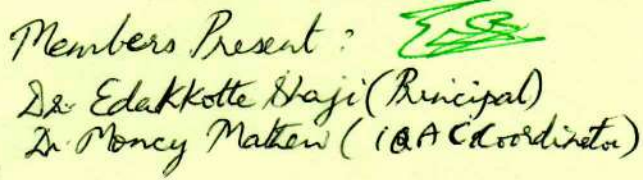 Members Present :
Dr. Edakkotte Shaji (Principal)
Dr. Moncy Mathew (IQAC Coordinator)